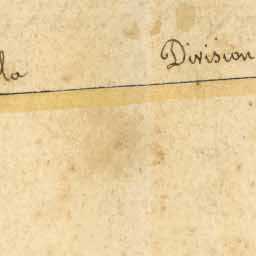 la Division